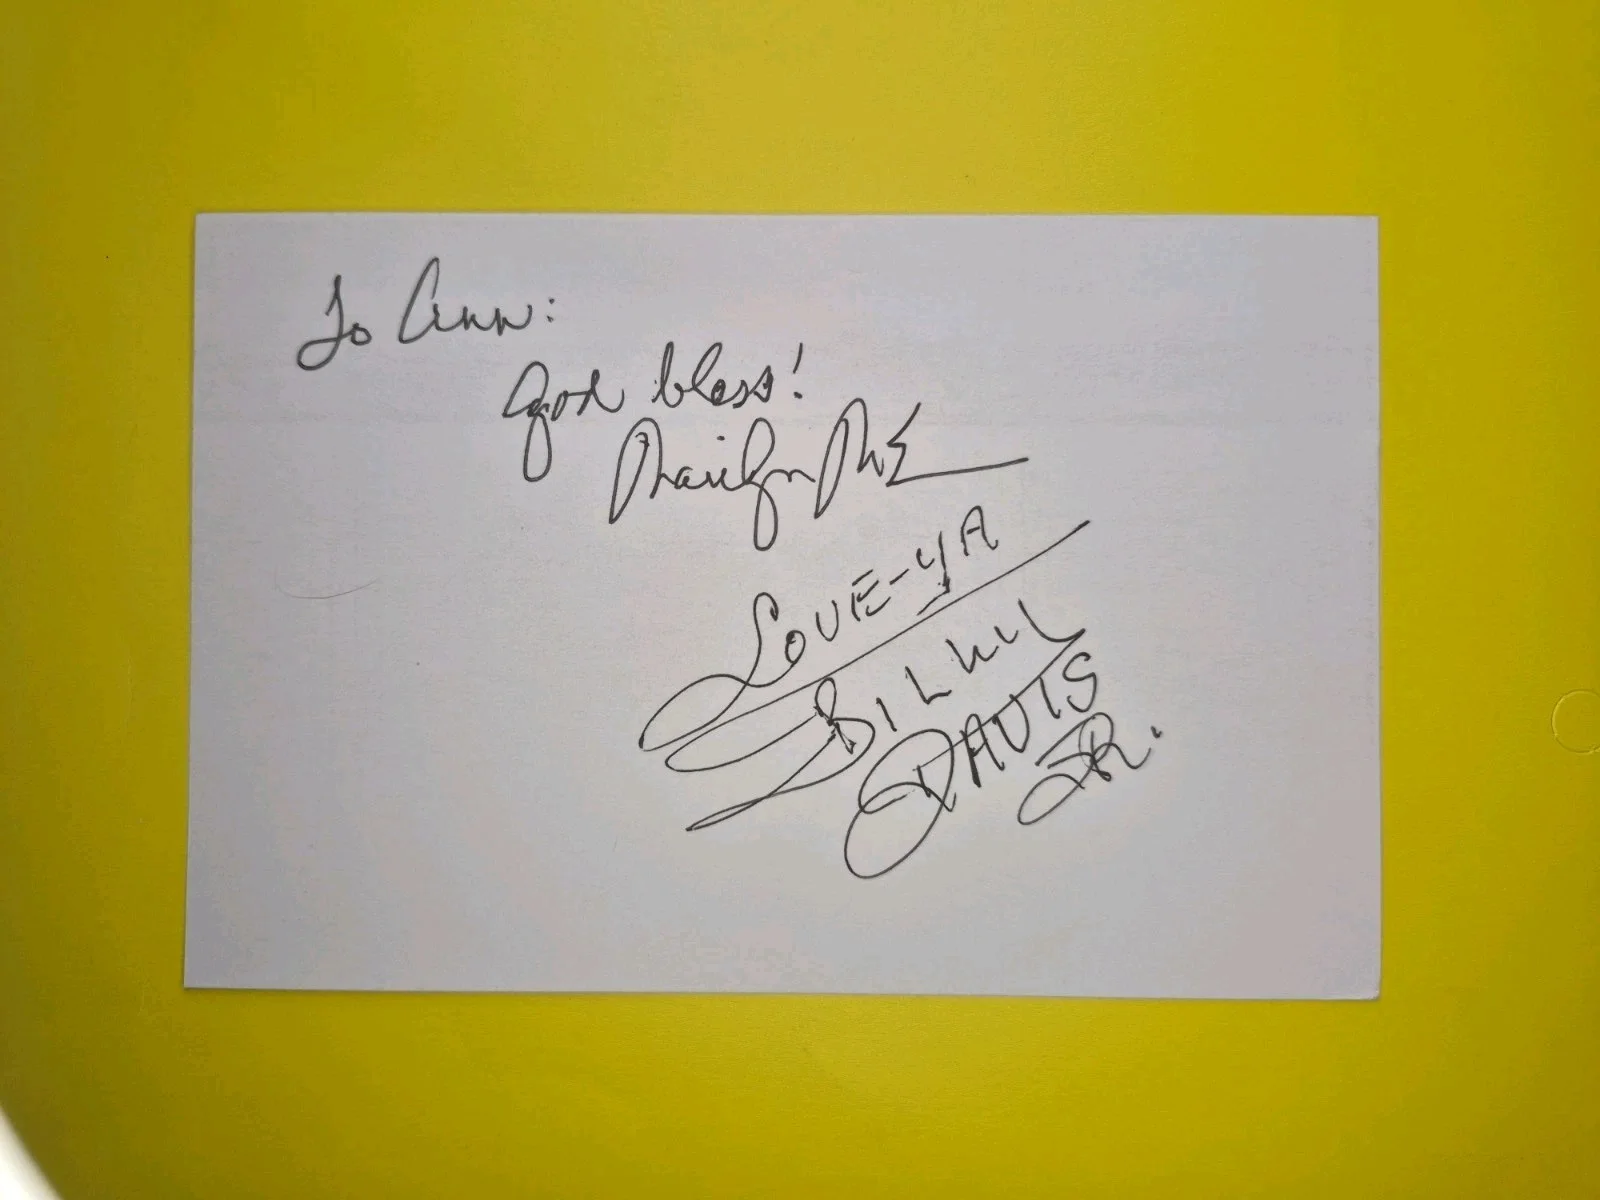 To Ann:
God bless!
Marilyn Mc
LOVE-YA
BILLY
DAVIS
JR.